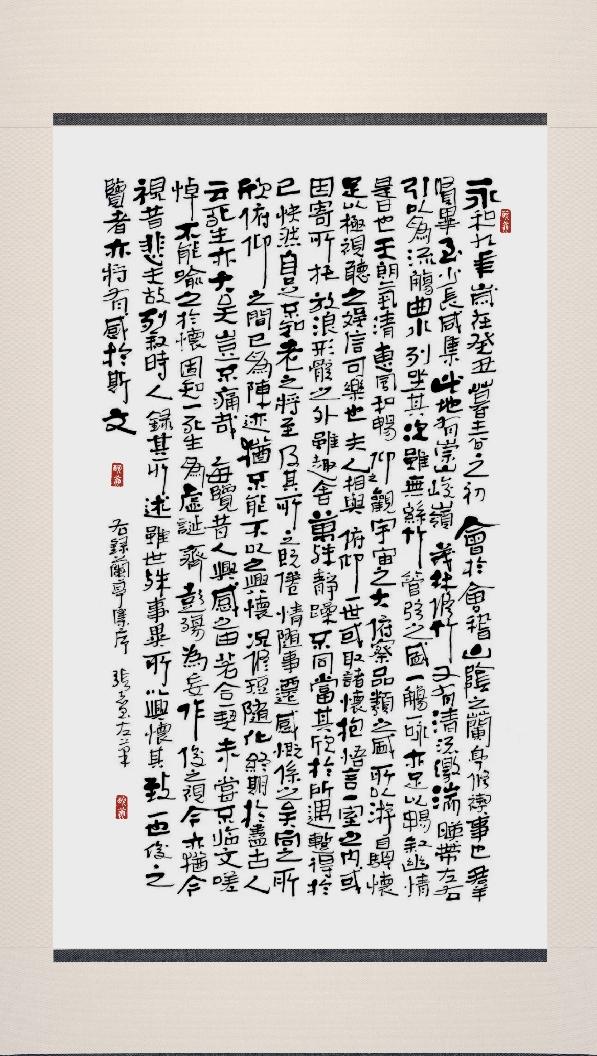 永和九年歲在癸丑暮春之初會於會稽山陰之蘭亭修禊事也羣
賢畢至少長咸集此地有崇山峻嶺茂林修竹又有清流激湍暎帶左右
引以為流觴曲水列坐其次雖無絲竹管弦之盛一觴一詠亦足以暢敘幽情
是日也天朗氣清惠風和暢仰觀宇宙之大俯察品類之盛所以游目騁懷
足以極視聽之娛信可樂也夫人相與俯仰一世或取諸懷抱悟言一室之內或
因寄所托放浪形骸之外雖趣舍萬殊靜躁不同當其欣於所遇暫得於
己快然自足不知老之將至及其所之既倦情隨事遷感慨係之矣向之所
欣俯仰之間已為陳迹猶不能不以之興懷況修短隨化終期於盡古人
云死生亦大矣豈不痛哉每覽昔人興感之由若合一契未嘗不臨文嗟
悼不能喻之於懷固知一死生為虛誕齊彭殤為妄作後之視今亦猶今
視昔悲夫故列敘時人錄其所述雖世殊事異所以興懷其致一也後之
覽者亦將有感於斯文
右錄蘭亭集序 張 左筆